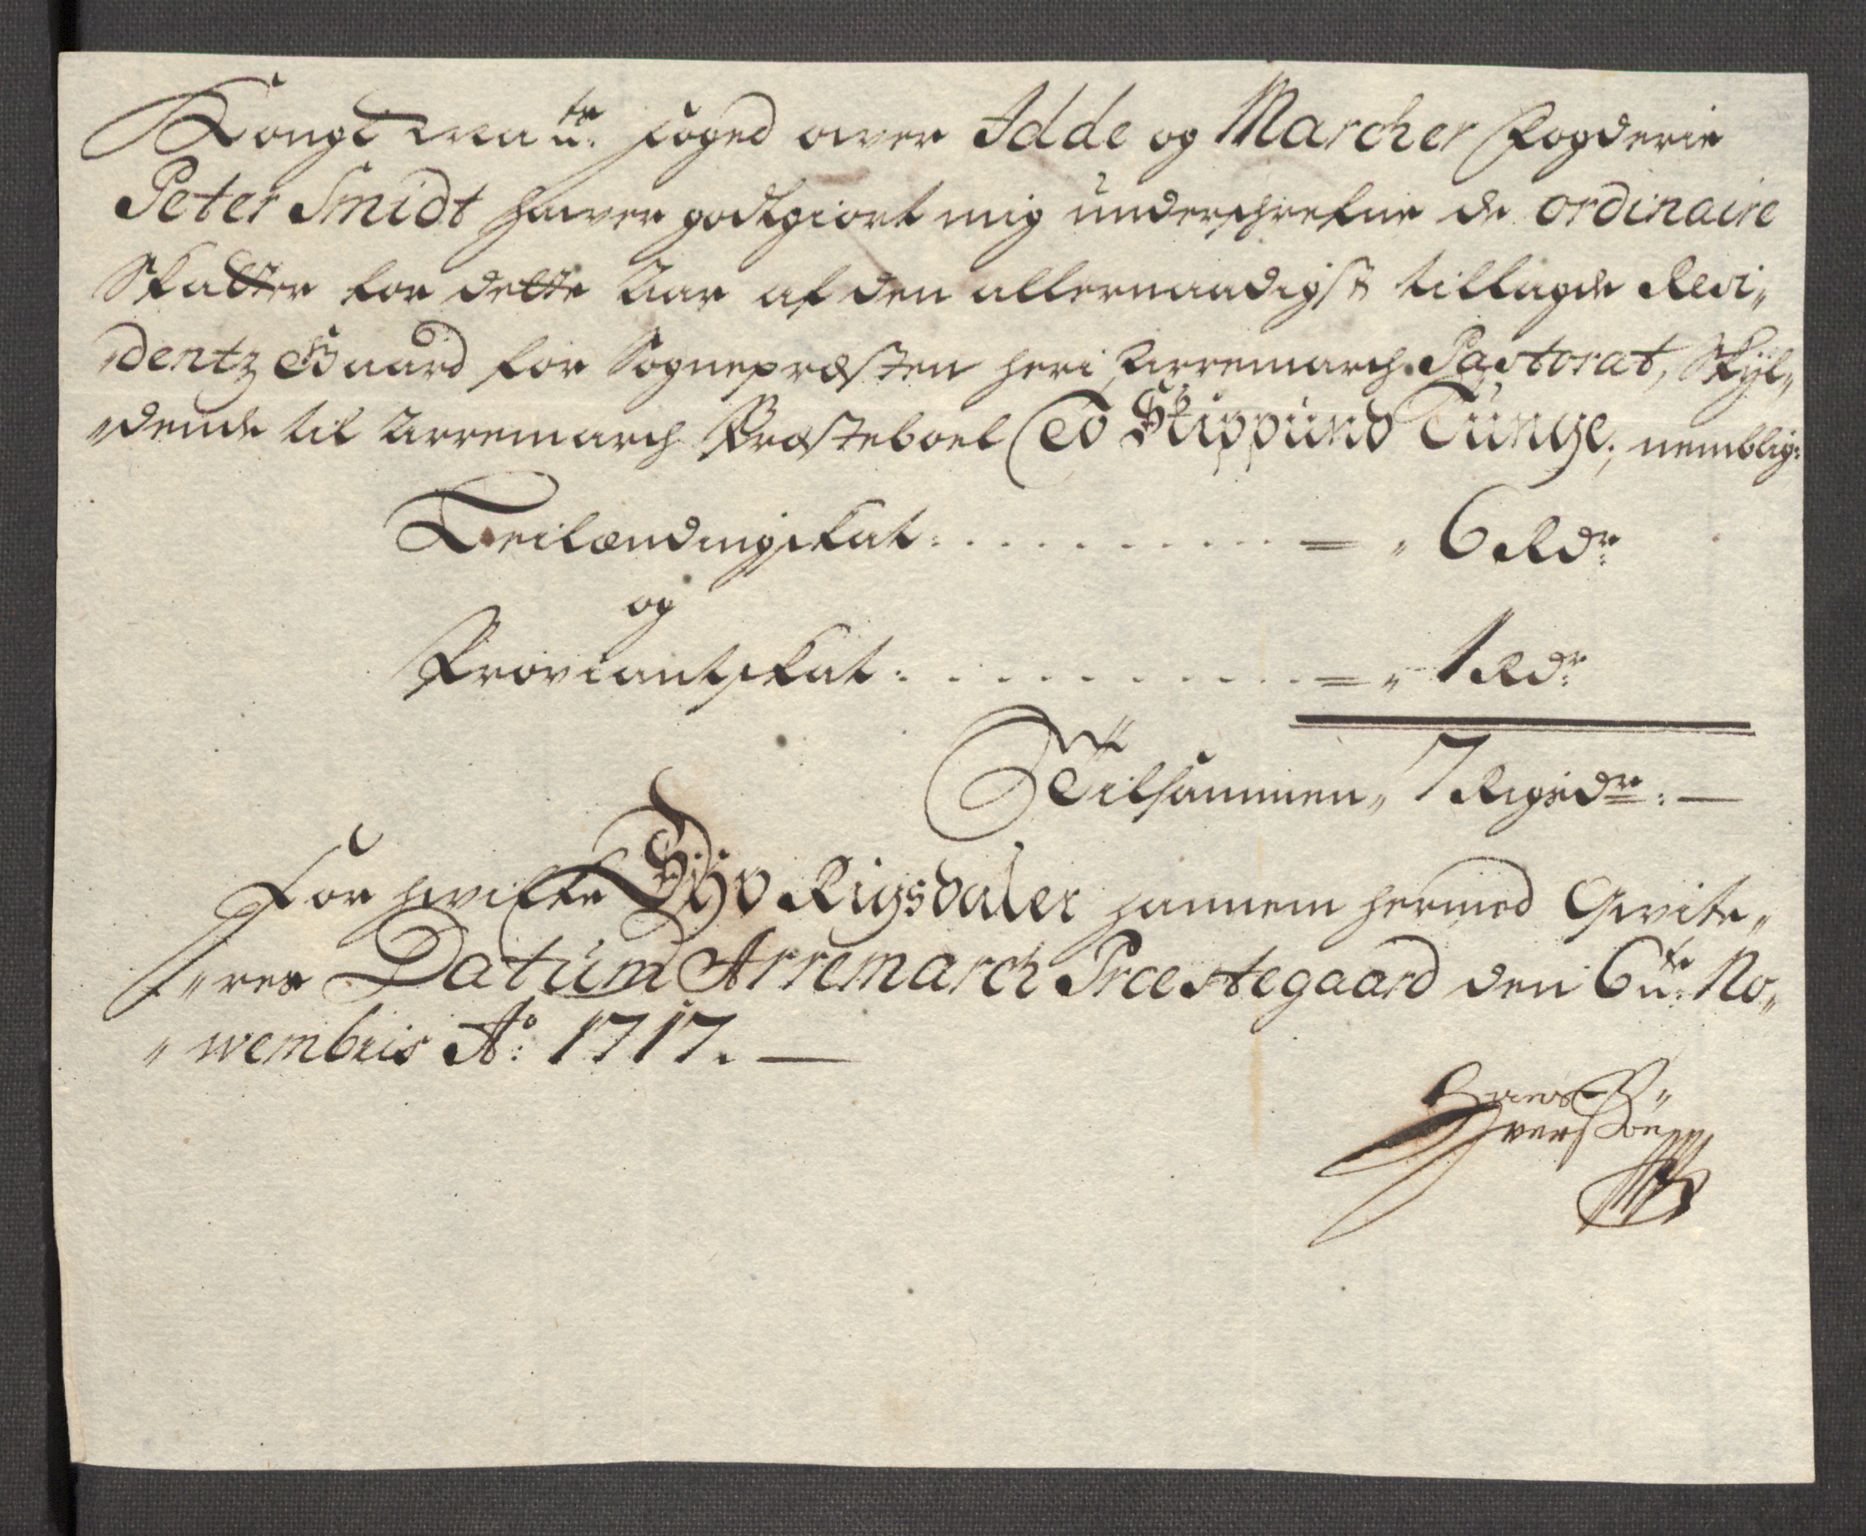 Kongl Ma.tts foged ower Idde og Marcher fogderie
Peter Smidt hawer godtgiort mig underschrefne de ordinaire
Skatter for dette Aar af den allernaadigst tillagde Resi„
„dentz Gaard for Sognepræsten her i Arremarch Pastorat, Skÿl„
„dende til Arremarch Præsteboel To Skippund Tunge, nemblig:
Leilændingskat: . . . . . . . . . . = „ 6 Rdr:
og
Proviantskat: . . . . . . . . . . = „ 1 Rdr:
Tilsammen „ 7 Rigsdr: —
For hwilke Sÿv Rigsdaler hannem hermed Qvite„
„res Datum Arremarch Præstegaard den 6te: No„
„wembris Ao: 1717. —